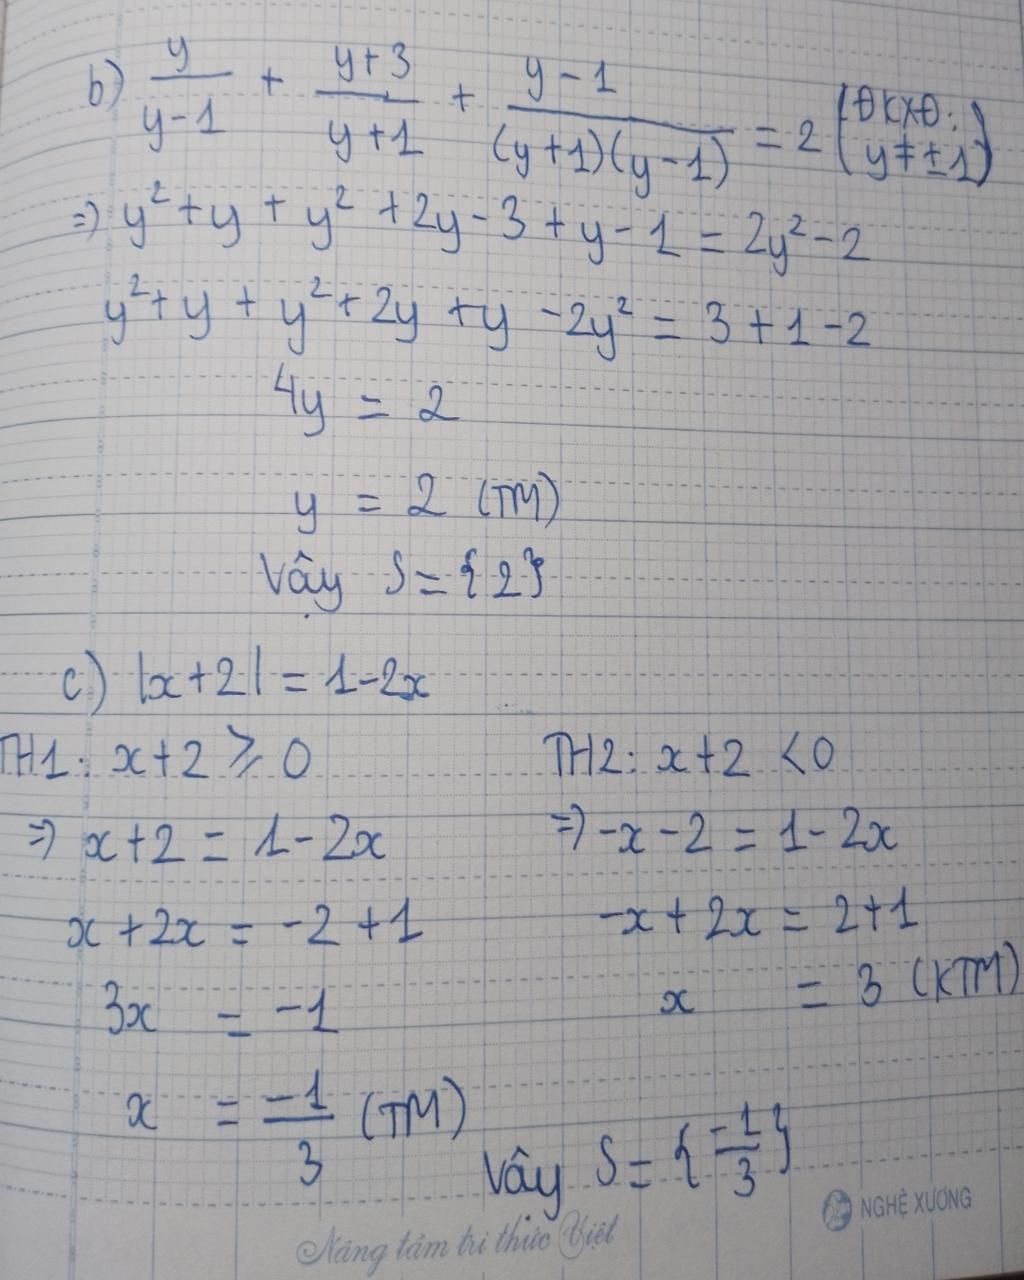 b) y/(y-1) + (y+3)/(y+1) + (y-1)/((y+1)(y-1)) = 2 (ĐKXĐ: y ≠ ±1)
=> y² + y + y² + 2y - 3 + y - 1 = 2y² - 2
y² + y + y² + 2y + y - 2y² = 3 + 1 - 2
4y = 2
y = 2 (TM)
Vậy S = {2}
c) |x+2| = 1-2x
TH1: x+2 ⩾ 0
=> x+2 = 1-2x
x+2x = -2+1
3x = -1
x = -1/3 (TM)
TH2: x+2 < 0
=> -x-2 = 1-2x
-x+2x = 2+1
x = 3 (KTM)
Vậy S = {-1/3}
NGHỆ XƯƠNG
Nâng tầm tri thức Việt